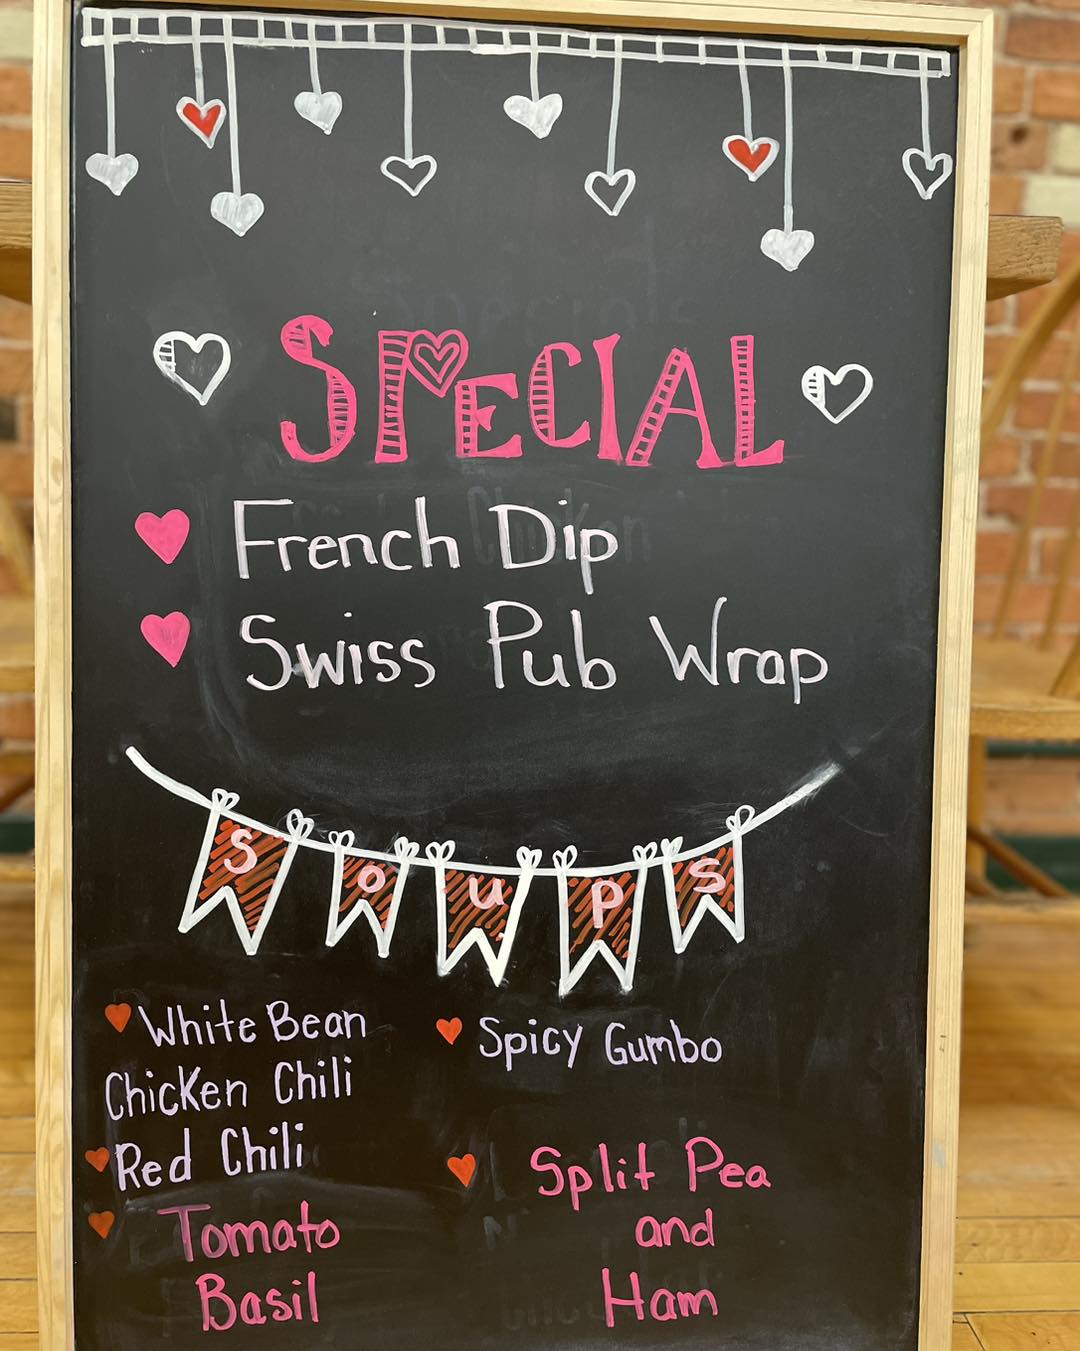 SPECIAL
French Dip
Swiss Pub Wrap
soups
White Bean
Chicken Chili
Red Chili
Tomato
Basil
Spicy Gumbo
Split Pea
and
Ham